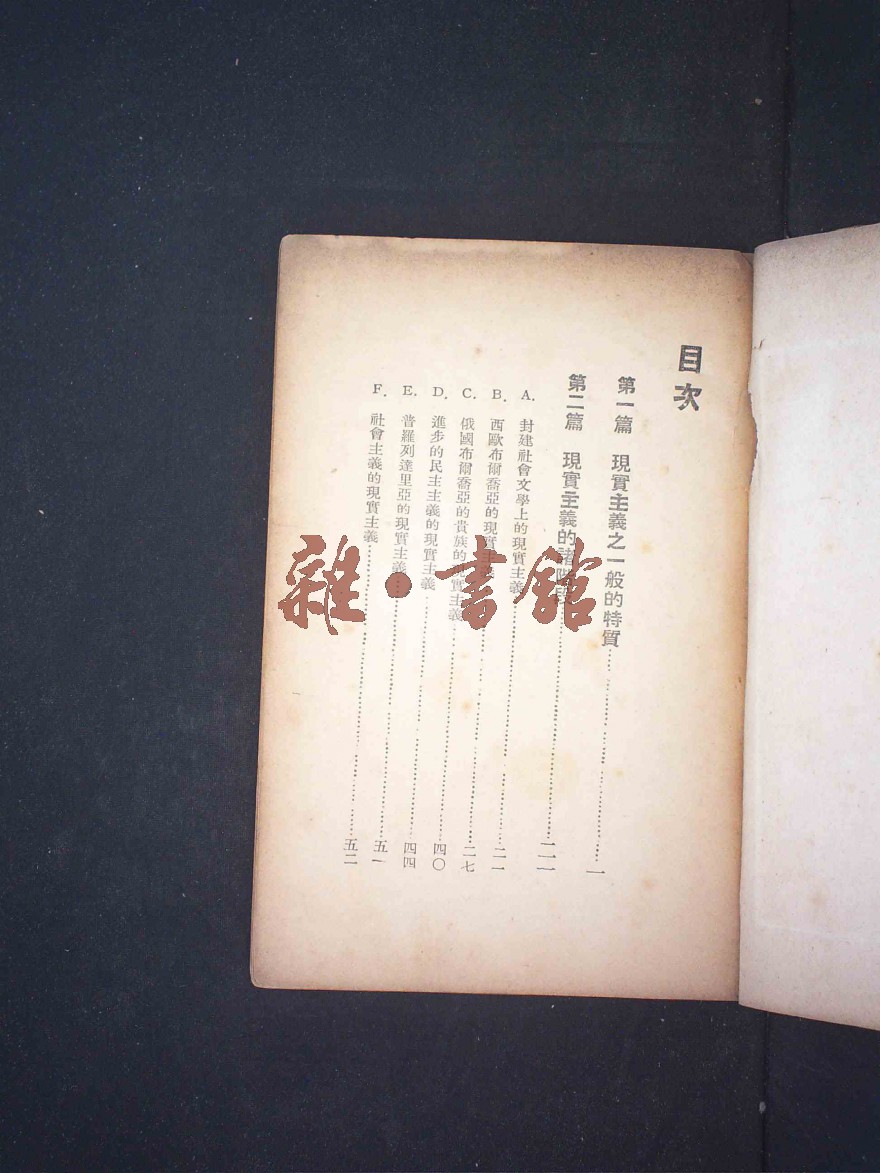 目次
第一篇 現實主義之一般的特質……一
第二篇 現實主義的諸階段……二一
A. 封建社會文學上的現實主義……二一
B. 西歐布爾喬亞的現實主義……二七
C. 俄國布爾喬亞的貴族的現實主義……四〇
D. 進步的民主主義的現實主義……四四
E. 普羅列達里亞的現實主義……五一
F. 社會主義的現實主義……五二
雜·書館